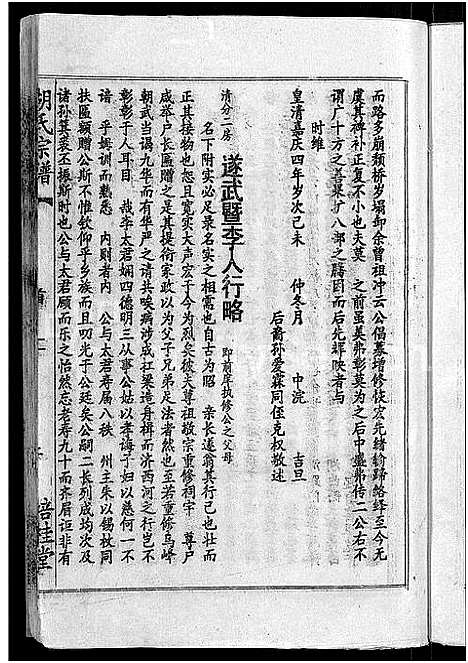 而路多崩颓桥岁塌卸余曾祖冲云公倡募增修恢宏先绪纷蹄络绎至今无
虞其裨补正复不小也夫莫 之前虽美弗彰莫为之后中盛弗传二公右不
谓广十方之善果扩八部之 因而后先辉映者与
时维
皇清嘉庆四年岁次己未 仲冬月 中浣 吉旦
后裔孙爱霖同侄克权敬述
清分二房 遂武暨李人行略 即前庠执修公之父母
名下附实必足录名实之相需也自古为昭 亲长遂翁其行己也壮而
正其接物也恕且宽实大声宏于今为烈矣彼夫尊祖敬宗重修祠宇 尊户
咸举户长匾赠之于是其提衔家政以为父子兄弟足法者然也至若重修乌峰
朝武当谒九华而有华严之请共唤病涉成江梁造舟楫而济西河之行岂不
彰彰于人耳目 哉李太君娴四德明三从事公姑以孝诲子妇以慈何一不
谙 乎姆训而 悉 内则者内 公与太君寿届八秩 州主朱以锡枚同
扶匾额赠公斯不惟钦仰乎乡族而且叨光于公廷矣公嗣二长列成均次及
诸孙箕裘丕振斯时也公与太君顾而乐之怡然忘老寿九十而齐眉讵非有
胡氏宗谱
首
培桂堂